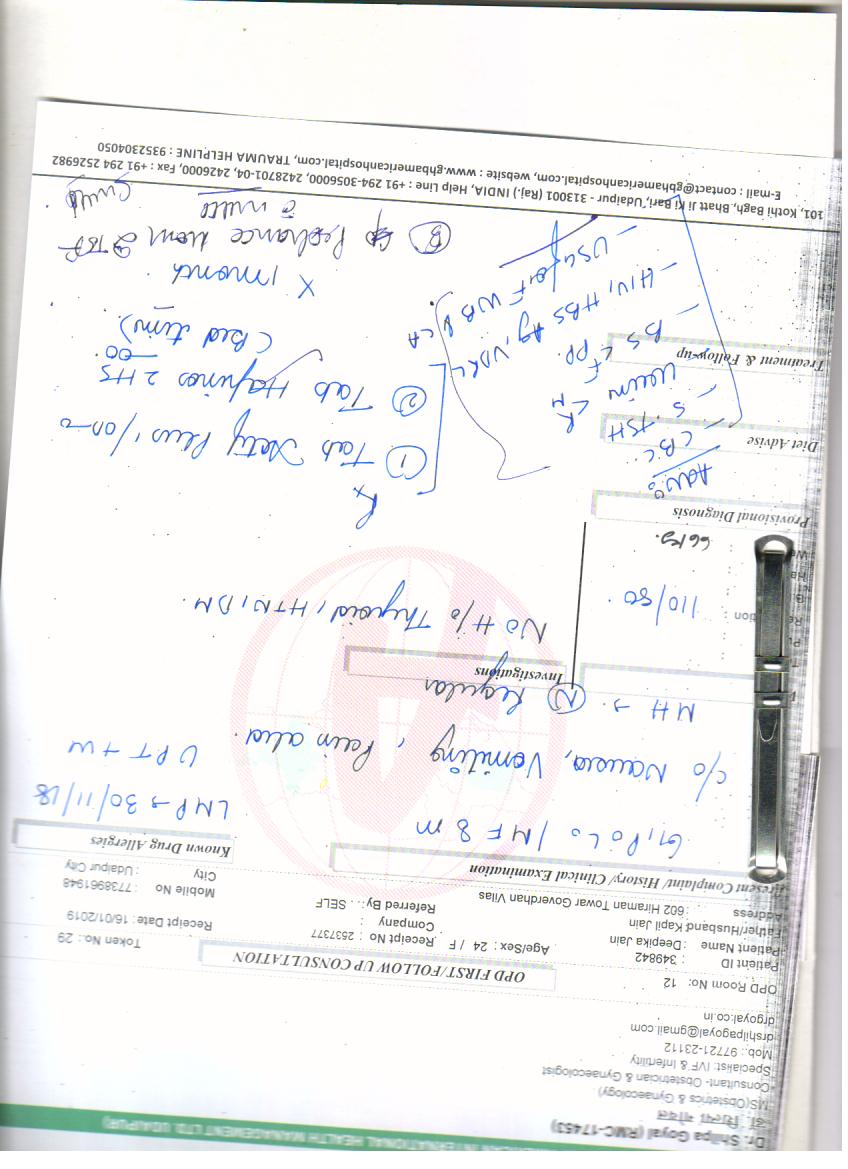 AMERICAN INTERNATIONAL HEALTH MANAGEMENT LTD. UDAIPUR)
Dr. Shilpa Goyal (RMC-17453)
डॉ. शिल्पा गोयल
MS(Obstetrics & Gynaecology)
Consultant- Obstetrician & Gynaecologist
Specialist: IVF & Infertility
Mob.: 97721-23112
drshilpagoyal@gmail.com
drgoyal.co.in
OPD Room No: 12
OPD FIRST/FOLLOW UP CONSULTATION
Token No.: 29
Patient ID : 349842
Patient Name : Deepika Jain
Age/Sex: 24 / F
Receipt No : 2537377
Receipt Date: 16/01/2019
Father/Husband Kapil Jain
Company :
Mobile No : 7738961948
Address : 602 Hiraman Towar Goverdhan Vilas
Referred By: SELF
City : Udaipur City
Present Complaint/ History/ Clinical Examination
Known Drug Allergies
G1P0L0 / MF 8 m
LMP → 30/11/18
c/o Nausea, Vomiting, Pain abd.
UPT +ve
MH → (N) Regular
Investigations
No H/o Thyroid, HTN, DM.
110/80
66 kg.
Provisional Diagnosis
Adv:
CBC
S. TSH
Urine R M
BS F PP.
HIV, HBS Ag, VDRL
USG for FWB & CA
Diet Advise
Treatment & Follow-up
Rx
(1) Tab
(2) Tab 2 HS
(Bed time)
X 1 month
(3)
c milk
101, Kothi Bagh, Bhatt Ji Ki Bari, Udaipur - 313001 (Raj.) INDIA, Help Line : +91 294-3056000, 2428701-04, 2426000, Fax : +91 294 2526982
E-mail : contact@gbhamericanhospital.com, website : www.gbhamericanhospital.com, TRAUMA HELPLINE : 9352304050